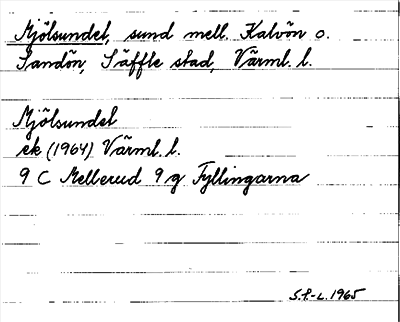 Mjölsundet, sund mell. Kalvön o.
Sandön, Säffle stad, Värml. l.
Mjölsundet
ek (1964) Värml. l.
9 C Mellerud 9 g Fyllingarna
S.F.-L. 1965